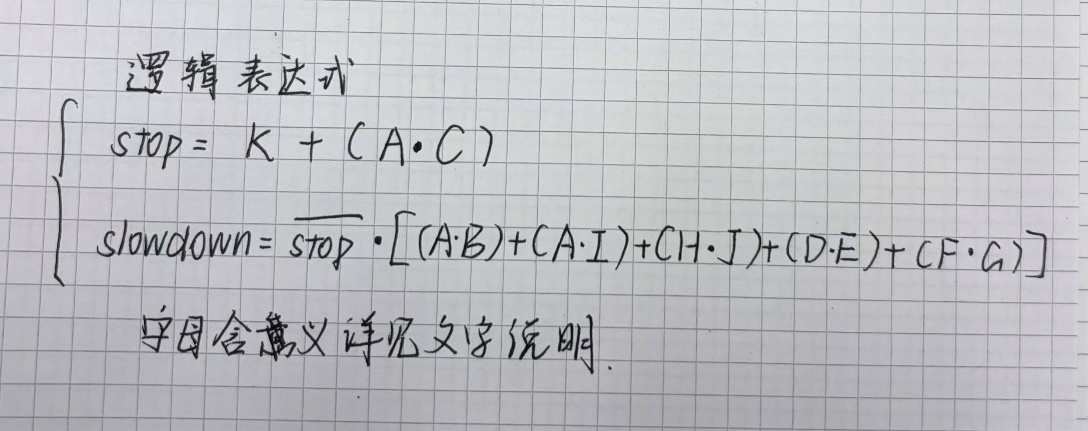 逻辑表达式
stop = K + (A·C)
slowdown = \overline{stop}·[(A·B)+(A·I)+(H·J)+(D·E)+(F·G)]
字母含义详见文字说明.